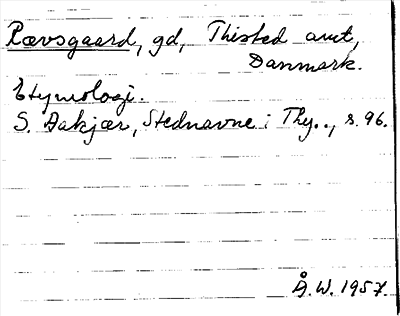 Rævsgaard, gd, Thisted amt,
Danmark.
Etymologi.
S. Aakjær, Stednavne i Thy.., s. 96.
Å.W. 1957.